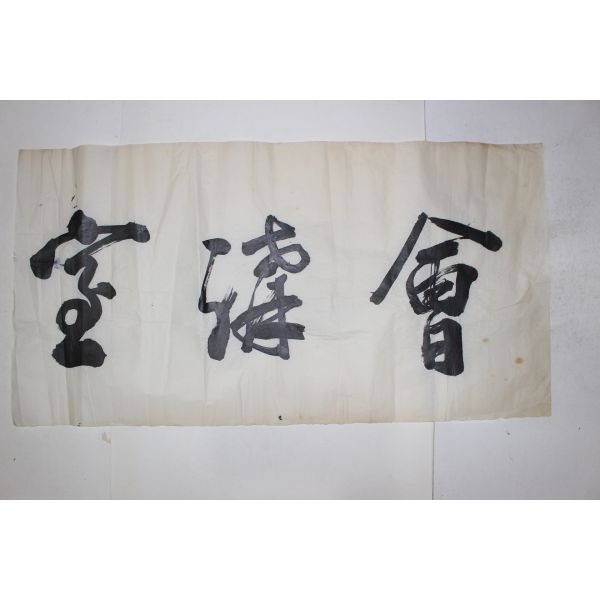 會講室